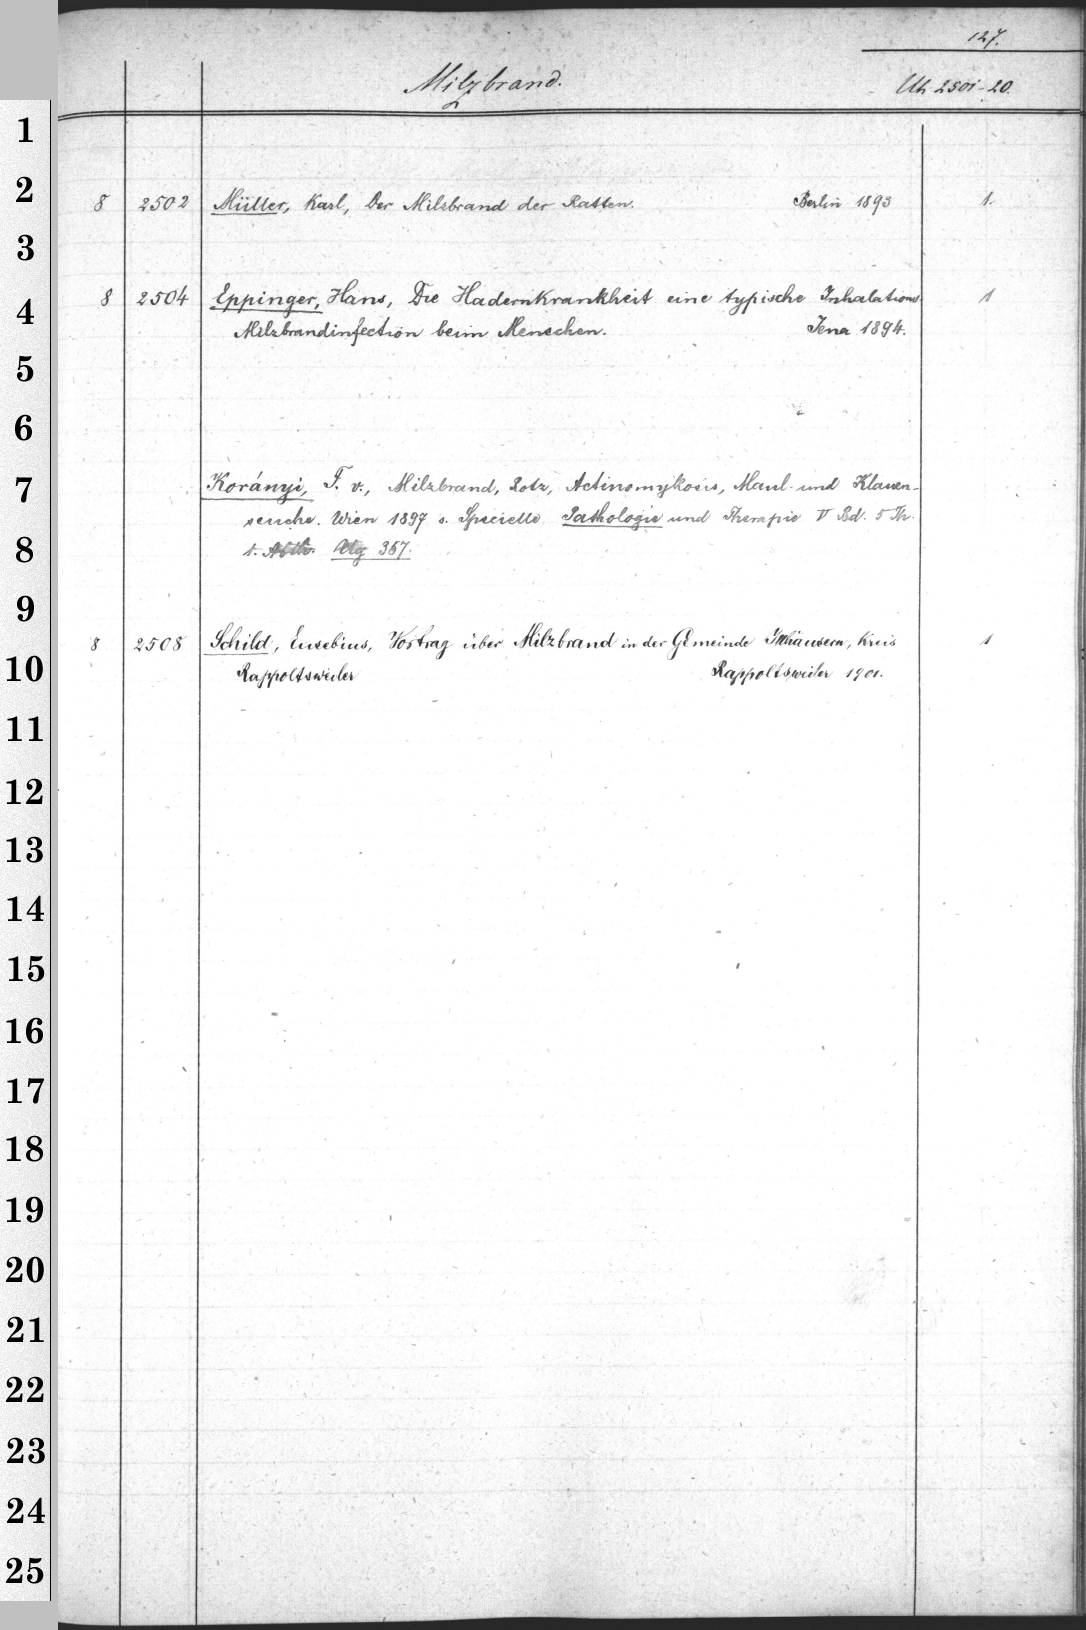 127.
Milzbrand.
Uh 2501-20.
1
2
8 2502 Müller, Karl, Der Milzbrand der Ratten. Berlin 1893 1.
3
8 2504 Eppinger, Hans, Die Hadernkrankheit eine typische Inhalations 1
4
Milzbrandinfection beim Menschen. Jena 1894.
5
6
7
Korányi, F. v., Milzbrand, Rotz, Actinomykosis, Maul- und Klauen-
seuche. Wien 1897 s. Specielle Pathologie und Therapie V Bd. 5 Th.
8
1. Abth. Utg 367.
9
8 2508 Schild, Eusebius, Vortrag über Milzbrand in der Gemeinde Illhäusern, Kreis 1
10
Rappoltsweiler Rappoltsweiler 1901.
11
12
13
14
15
16
17
18
19
20
21
22
23
24
25